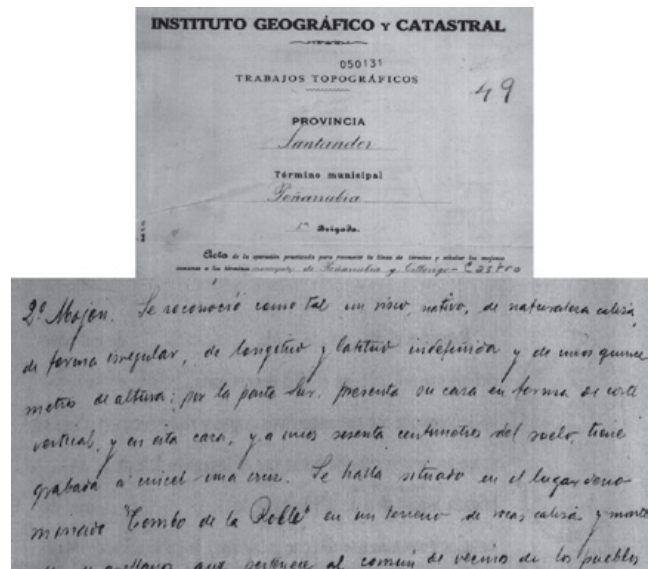 INSTITUTO GEOGRÁFICO Y CATASTRAL
050131
TRABAJOS TOPOGRÁFICOS
49
PROVINCIA
Santander
Término municipal
Peñarrubia
1ª Brigada.
Acta de la operación practicada para reconocer la línea de término y señalar los mojones
comunes a los términos municipales de Peñarrubia y Cillorigo-Castro
2º Mojón. Se reconoció como tal un risco, nativo, de naturaleza caliza,
de forma irregular, de longitud y latitud indefinida y de unos quince
metros de altura; por la parte Sur. presenta su cara en forma de corte
vertical, y en esta cara, y a unos sesenta centímetros del suelo, tiene
grabada a cincel una cruz. Se halla situado en el lugar deno-
minado "Combo de la Roble" en un terreno de rocas calizas y monte
que pertenece al común de vecinos de los pueblos